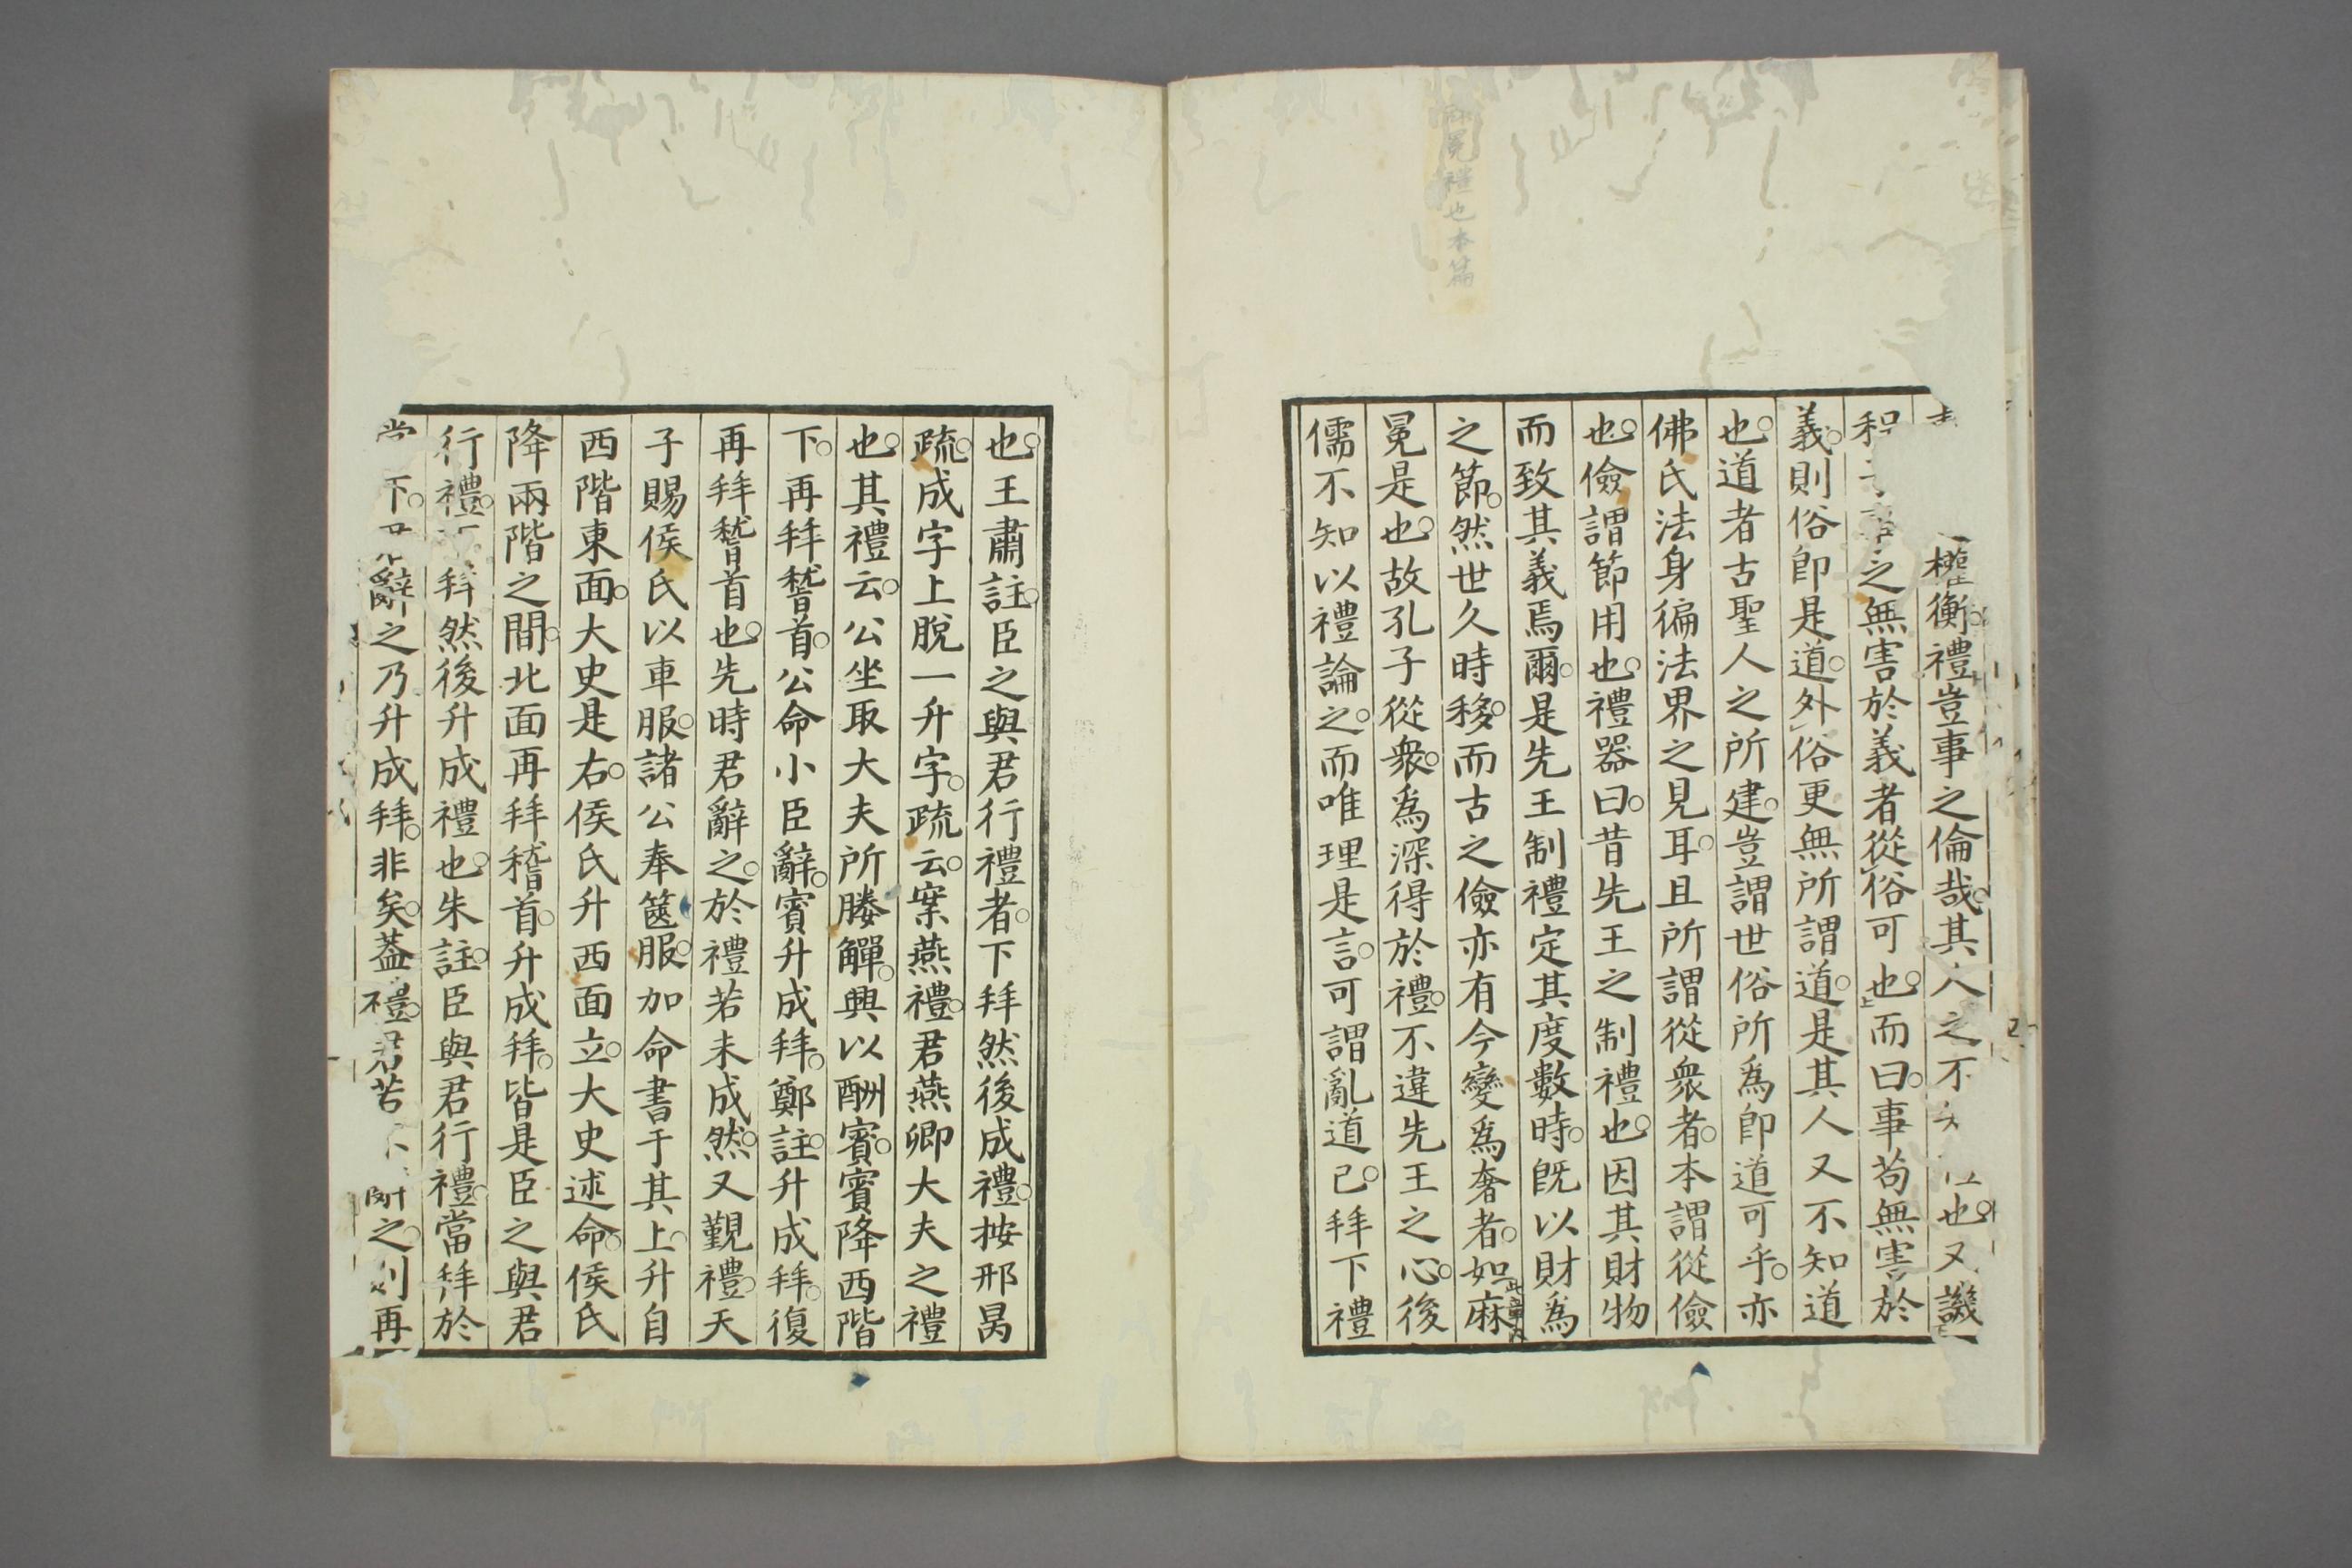 冕禮也本篇
權衡。禮豈事之倫哉。其人之不知禮也。又譏
程子事之無害於義者從俗可也。而曰。事苟無害於
義。則俗即是道。外俗更無所謂道。是其人又不知道
也。道者古聖人之所建。豈謂世俗所爲即道可乎。亦
佛氏法身徧法界之見耳。且所謂從衆者。本謂從儉
也。儉謂節用也。禮器曰。昔先王之制禮也。因其財物
而致其義焉爾。是先王制禮定其度數時。既以財爲
之節。然世久時移。而古之儉亦有今變爲奢者。如麻
冕是也。故孔子從衆。爲深得於禮。不違先王之心。後
儒不知以禮論之。而唯理是言。可謂亂道已。拜下禮
也。王肅註。臣之與君行禮者。下拜然後成禮。按邢昺
疏。成字上脫一升字。疏云。案燕禮。君燕卿大夫之禮
也。其禮云。公坐取大夫所媵觶。興以酬賓。賓降西階
下。再拜稽首。公命小臣辭。賓升成拜。鄭註。升成拜。復
再拜稽首也。先時君辭之。於禮若未成然。又覲禮。天
子賜侯氏以車服。諸公奉篋服。加命書于其上。升自
西階東面。大史是右。侯氏升西面立。大史述命。侯氏
降兩階之間。北面再拜稽首。升成拜。皆是臣之與君
行禮。下拜然後升成禮也。朱註。臣與君行禮。當拜於
堂下。君辭之乃升成拜。非矣。蓋禮。君若不辭之。則再